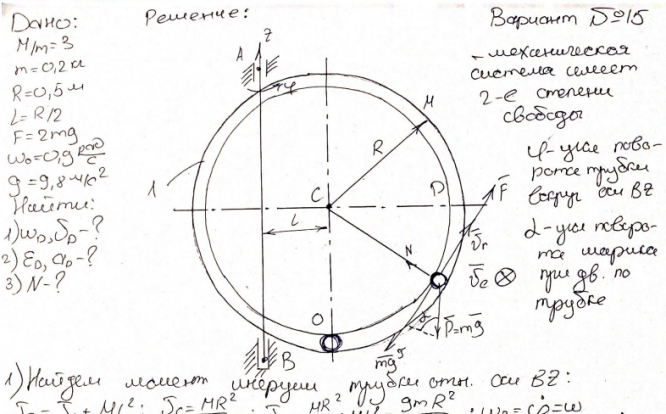 Дано:
M/m=3
m=0,2 кг
R=0,5 м
L=R/2
F=2mg
ω₀=0,9 рад/с
g=9,8 м/с²
Найти:
1) ω_D, υ_D-?
2) ε_D, a_D-?
3) N-?
Решение:
A
z
φ
M
R
1
C
D
L
N
O
B
F̄
ῡr
ῡe ⊗
α
P̄=mḡ
Вариант №15
- механическая
система имеет
2-е степени
свободы
φ-угол пово-
рота трубки
вокруг оси BZ
α-угол поворо-
та шарика
при дв. по
трубке
1) Найдем момент инерции трубки отн. оси BZ: